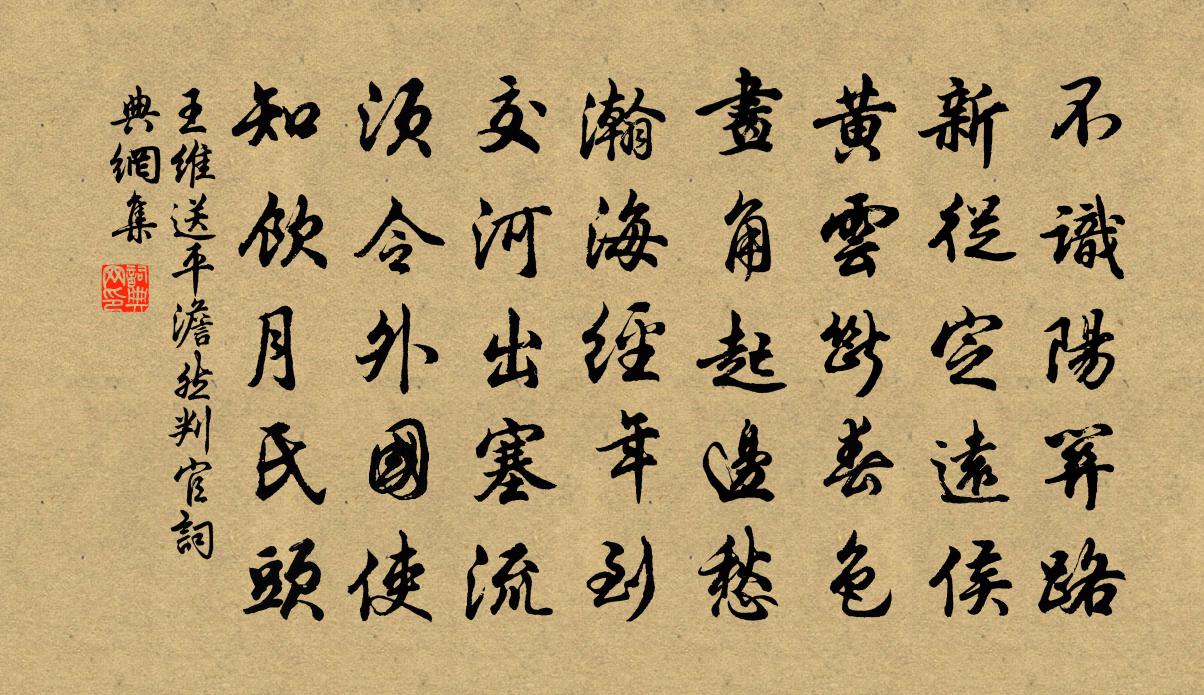 不識陽關路
新從定遠侯
黃雲斷春色
畫角起邊愁
瀚海經年到
交河出塞流
須令外國使
知飲月民頭
王維送平澹然判官詞
典網集
詞典
网印